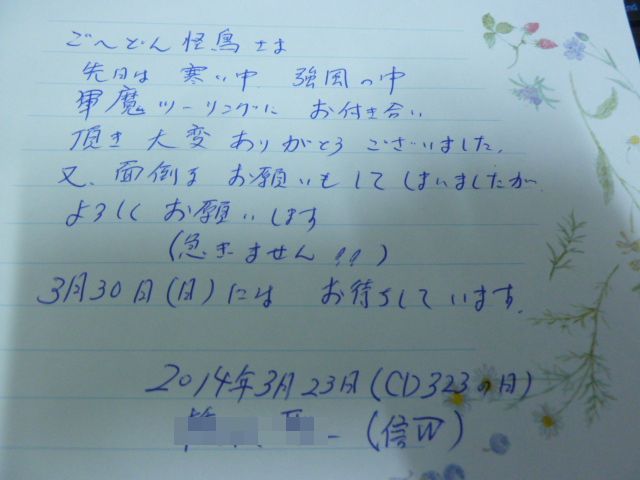 ごへどん怪鳥さま
先日は 寒い中、強風の中
軍魔ツーリングに お付き合い
頂き 大変 ありがとう ございました。
又、面倒な お願いもして しまいましたが
よろしく お願いします
(急ぎません!!)
3月30日(日)には お待ちしています。
2014年3月23日(CD323の日)
(信W)